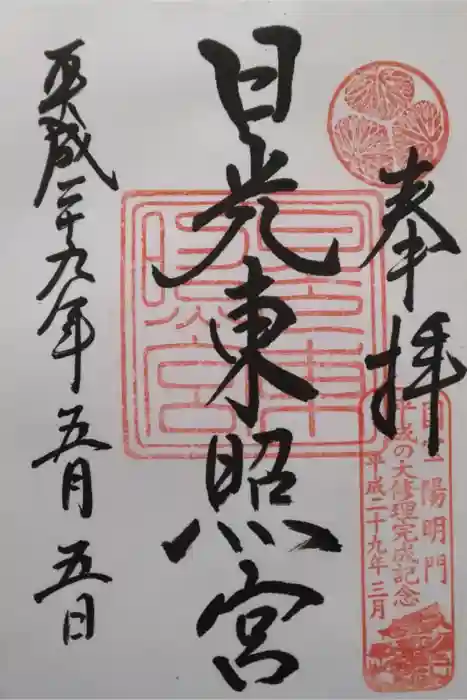 奉拝
日光東照宮
平成二十九年五月五日
日光東照宮
国宝陽明門
平成の大修理完成記念
平成二十九年三月